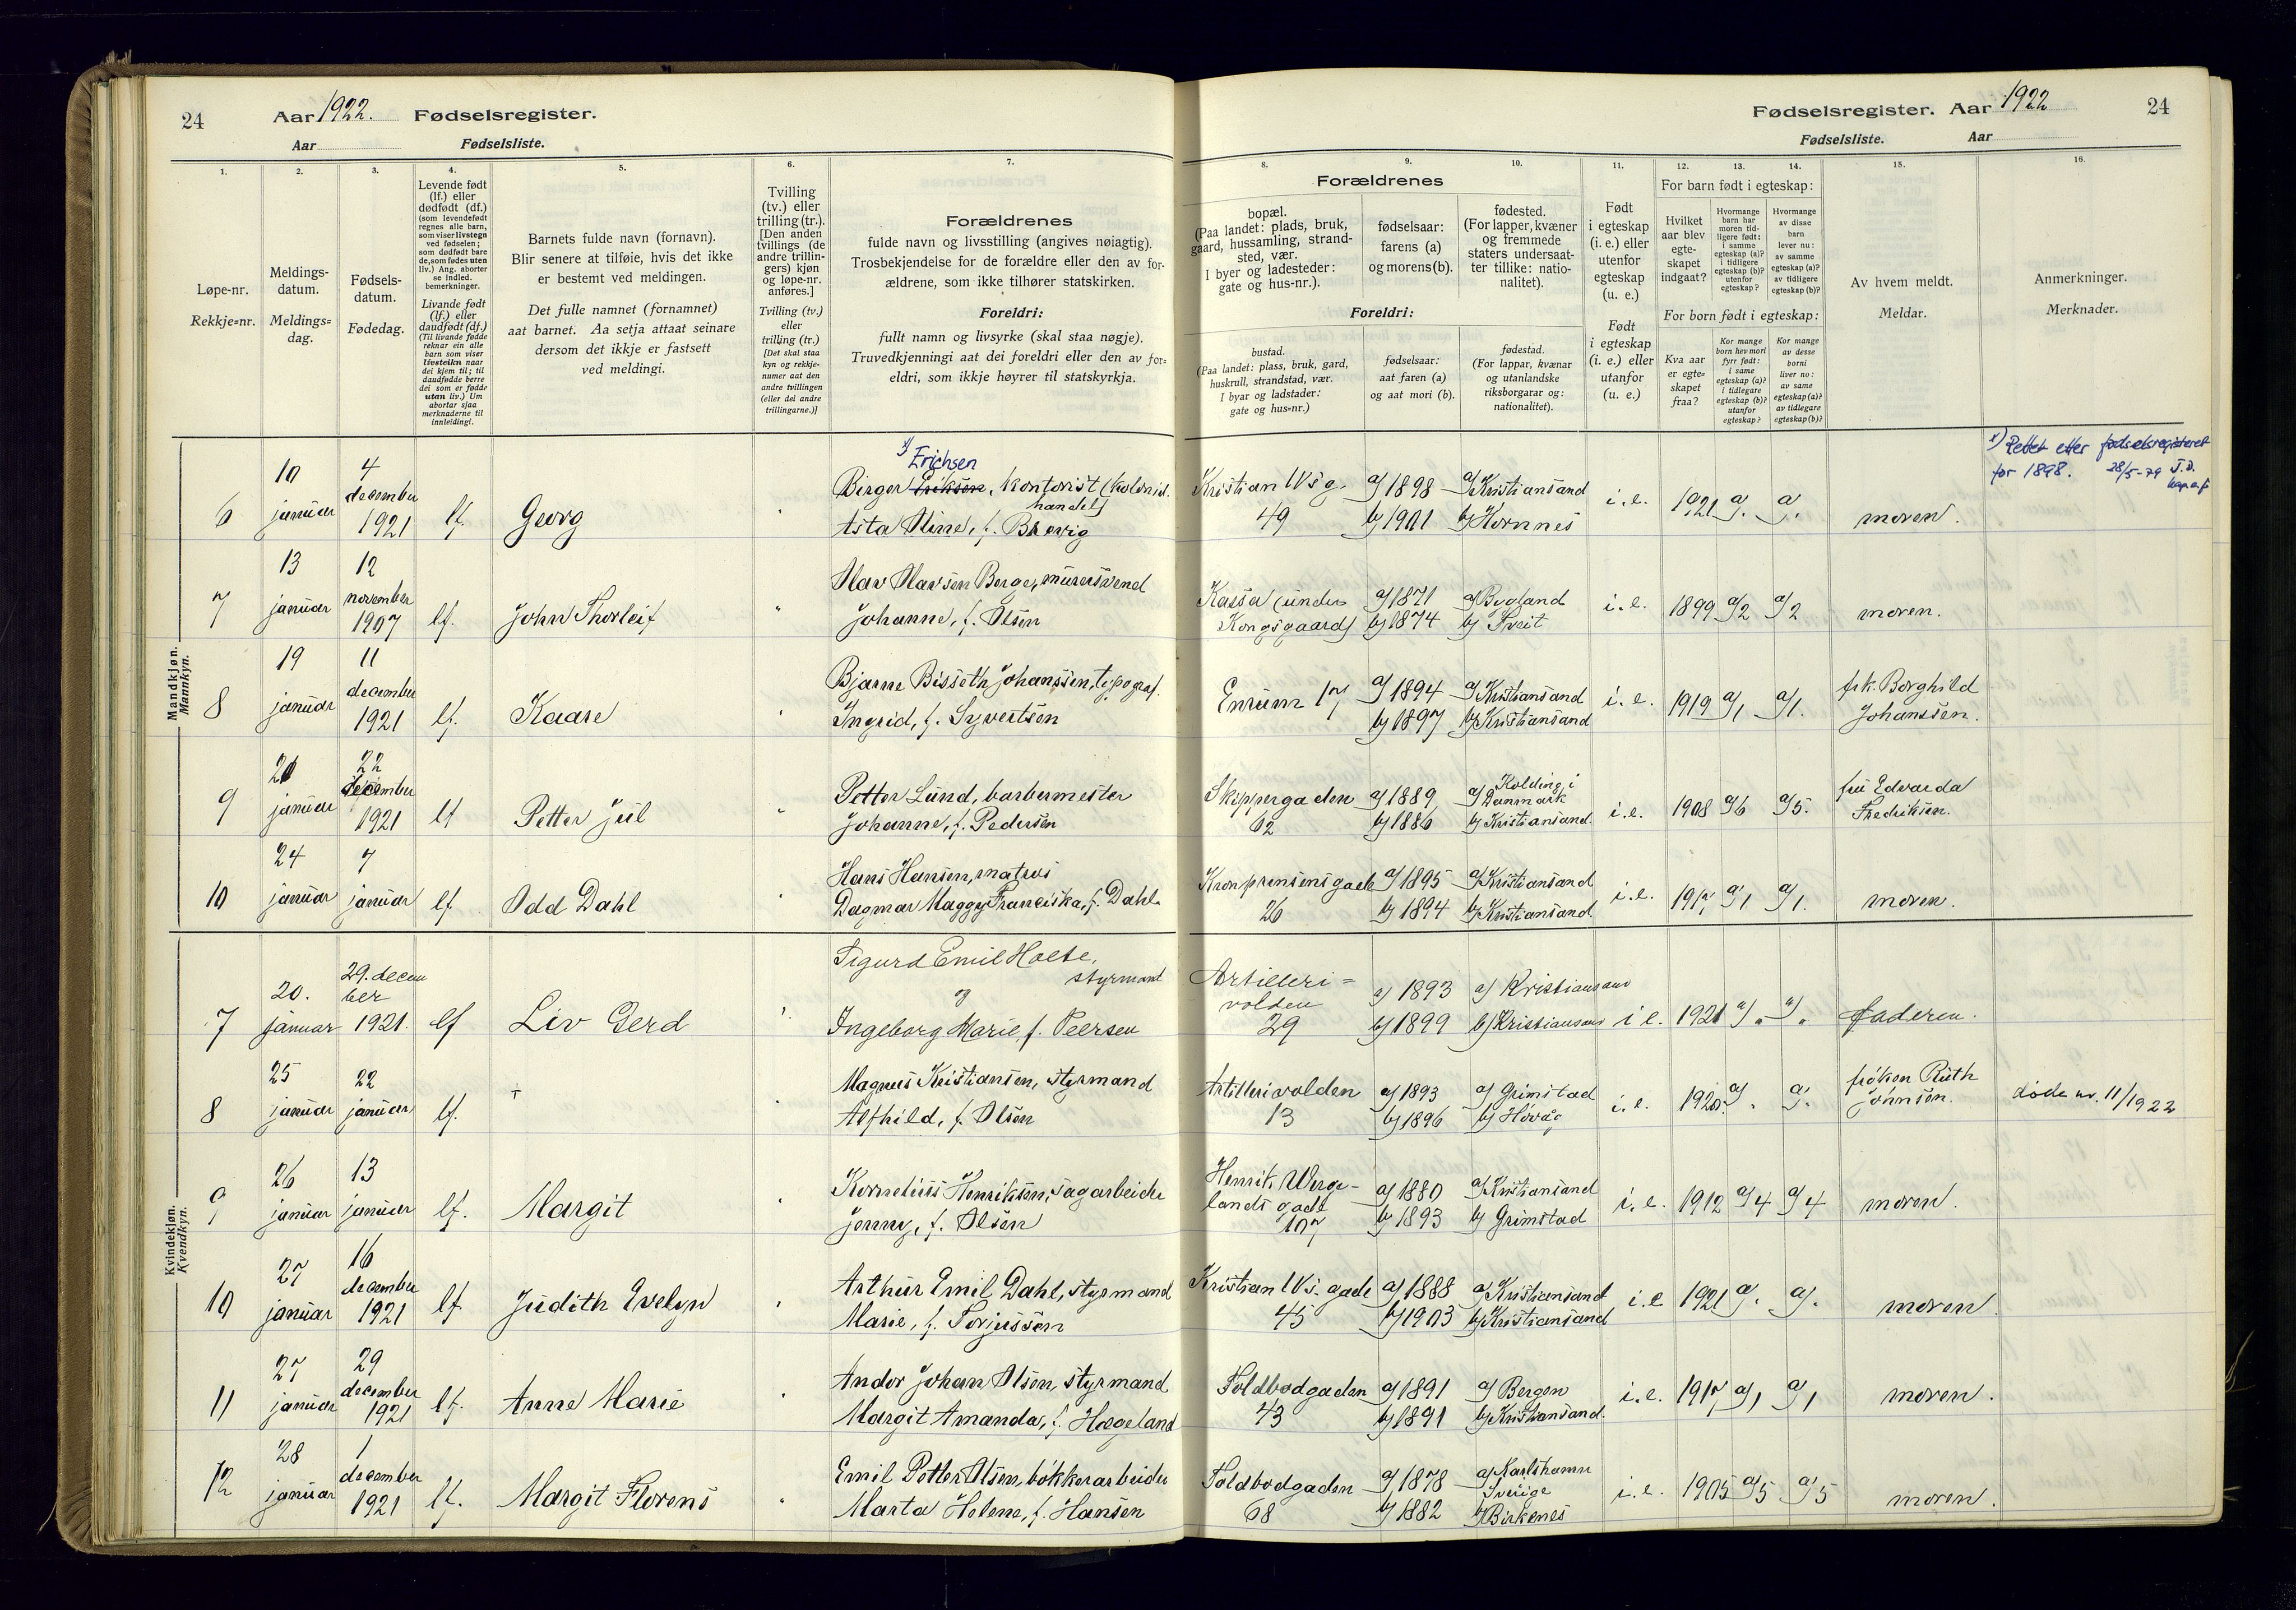 24
Aar 1922.
Fødselsregister.
Aar
Fødselsliste.
Fødselsregister. Aar 1922
24
Fødselsliste.
Aar
1.
Løpe-nr.
Rekkje=nr.
2.
Meldings-
datum.
Meldings=
dag.
3.
Fødsels-
datum.
Fødedag.
4.
Levende født
(lf.) eller
dødfødt (df.)
(som levendefødt
regnes alle barn,
som viser livstegn
ved fødselen;
som dødfødt bare
de, som fødes uten
liv.) Ang. aborter
se indled.
bemerkninger.
Livande født
(lf.) eller
daudfødt (df.)
(Til livande fødde
reknar ein alle
barn som viser
livsteikn naar
dei kjem til; til
daudfødde berre
dei som er fødde
utan liv.) Um
abortar sjaa
merknaderne til
innleidingi.
5.
Barnets fulde navn (fornavn).
Blir senere at tilføie, hvis det ikke
er bestemt ved meldingen.
Det fulle namnet (fornamnet)
aat barnet. Aa setja attaat seinare
dersom det ikkje er fastsett
ved meldingi.
6.
Tvilling
(tv.) eller
trilling (tr.).
[Den anden
tvillings (de
andre trillin-
gers) kjøn
og løpe-nr.
anføres.]
Tvilling (tv.)
eller
trilling (tr.)
[Det skal staa
kyn og rekkje-
numer aat den
andre tvillingen
(eller dei andre
trillingarne.)]
7.
Forældrenes
fulde navn og livsstilling (angives nøiagtig).
Trosbekjendelse for de forældre eller den av for-
ældrene, som ikke tilhører statskirken.
Foreldri:
fullt namn og livsyrke (skal staa nøgje).
Truvedkjenningi aat dei foreldri eller den av for-
eldri, som ikkje høyrer til statskyrkja.
Forældrenes
8.
bopæl.
(Paa landet: plads, bruk,
gaard, hussamling, strand-
sted, vær.
I byer og ladesteder:
gate og hus-nr.).
9.
fødselsaar:
farens (a)
og morens (b).
10.
fødested.
(For lapper, kvæner
og fremmede
staters undersaat-
ter tillike: natio-
nalitet).
Foreldri:
bustad.
(Paa landet: plass, bruk, gard,
huskrull, strandstad, vær.
I byar og ladstader:
gate og hus=nr.)
fødselsaar:
aat faren (a)
og aat mori (b).
fødestad.
(For lappar, kvænar
og utanlandske
riksborgarar og:
nationalitet).
11.
Født
i egteskap
(i. e.) eller
utenfor
egteskap
(u. e.)
Født
i egteskap
(i. e.) eller
utanfor
(u. e.)
For barn født i egteskap:
12.
Hvilket
aar blev
egte-
skapet
indgaat?
13.
Hvormange
barn har
moren tid-
ligere født:
i samme
egteskap (a)?
i tidligere
egteskap (b)?
utenfor
egteskap?
14.
Hvormange
av disse
barn
lever nu:
av samme
egteskap (a)?
av tidligere
egteskap (b)?
For born født i egteskap:
Kva aar
er egte=
skapet
fraa?
Kor mange
born hev mori
fyrr født:
i same
egteskap (a)?
i tidlegare
egteskap (b)?
utanfor
egteskap?
Kor mange
av desse
borni
liver no:
av same
egteskap (a)?
av tidlegare
egteskap (b)?
15.
Av hvem meldt.
Meldar.
16.
Anmerkninger.
Merknader.
Mandkjøn.
Mannkyn.
6
10
januar
4
december
1921
lf.
Georg
x)
Erichsen
Birger Eriksen, kontorist (kolonial.
handel)
Asta Stine, f. Brevig
Kristian IVs g.
49
a) 1898
b) 1901
a) Kristiansand
b) Hornnes
i. e.
1921
a).
a).
moren.
x) Rettet etter fødselsregisteret
for 1898. 28/5-79
7
13
januar
12
november
1907
lf.
John Thorleif
Olav Olavsen Berge, murersvend
Johanne, f. Olsen
Kassa (under
Kongsgaard)
a) 1871
b) 1874
a) Bygland
b) Tveit
i. e.
1899
a) 2
a) 2
moren.
8
19
januar
11
december
1921
lf.
Kaare
Bjarne Bisseth Johanssen, typograf.
Ingrid, f. Syvertsen
Enrum 17
a) 1894
b) 1897
a) Kristiansand
b) Kristiansand
i. e.
1919
a) 1
a) 1.
frk. Borghild
Johanssen.
9
20
januar
22
december
1921
lf
Petter Jul
Petter Lund, barbermester
Johanne, f. Pedersen
Skippergaden
62
a) 1889
b) 1886
a) Kolding i
Danmark
b) Kristiansand.
i. e.
1908
a) 6
a) 5.
fru Edvarda
Fredriksen.
10
24
januar
7
januar
lf.
Odd Dahl
Hans Hansen, matros
Dagmar Maggy Franciska, f. Dahl.
Kronprinsensgade
26
a) 1895
b) 1894
a) Kristiansand
b) Kristiansand
i. e.
a) 1
a) 1.
moren.
Kvindekjøn.
Kvendkyn.
7
20.
januar
29. decem
ber
1921.
lf
Liv Gerd
Sigurd Emil Holte,
styrmand
og
Ingeborg Marie, f. Peersen
Artilleri=
volden
29
a) 1893
b) 1899
a) Kristiansand
b) Kristiansand
i e.
1921
a) "
a) "
faderen.
8
25
januar
22
januar
lf.
+
Magnus Kristiansen, styrmand
Alfhild, f. Olsen
Artillerivolden
13
a) 1893
b) 1896
a) Grimstad
b) Høvåg
i. e.
1920.
a) .
a).
frøken Ruth
Johnsen.
døde nr. 11/1922
9
26
januar
13
januar
lf.
Margit
Kornelius Henriksen, sagarbeider
Jenny, f. Olsen
Henrik Werge-
lands gade
107
a) 1880
b) 1893
a) Kristiansand
b) Grimstad
i. e.
1912
a) 4
a) 4
moren.
10
27
januar
16
december
1921
lf.
Judith Evelyn
Arthur Emil Dahl, styrmand
Marie, f. Torjussen
Kristian IVs. gade
45
a) 1888
b) 1903
a) Kristiansand
b) Kristiansand
i. e
1921
a).
a).
moren.
11
27
januar
29
december
1921
lf.
Anne Marie
Andor Johan Olsen, styrmand
Margit Amanda, f. Hægeland
Toldbodgaden
43
a) 1891
b) 1891
a) Bergen
b) Kristiansand.
i. e.
1917
a) 1
a) 1
moren.
12
28
januar
1
december
1921
lf.
Margit Florens
Emil Petter Olsen, bøkkerarbeider
Marta Helene, f. Hansen
Toldbodgaden
68
a) 1878
b) 1882
a) Karlshamn
Sverige
b) Birkenes
i. e.
1905
a) 5
a) 5
moren.